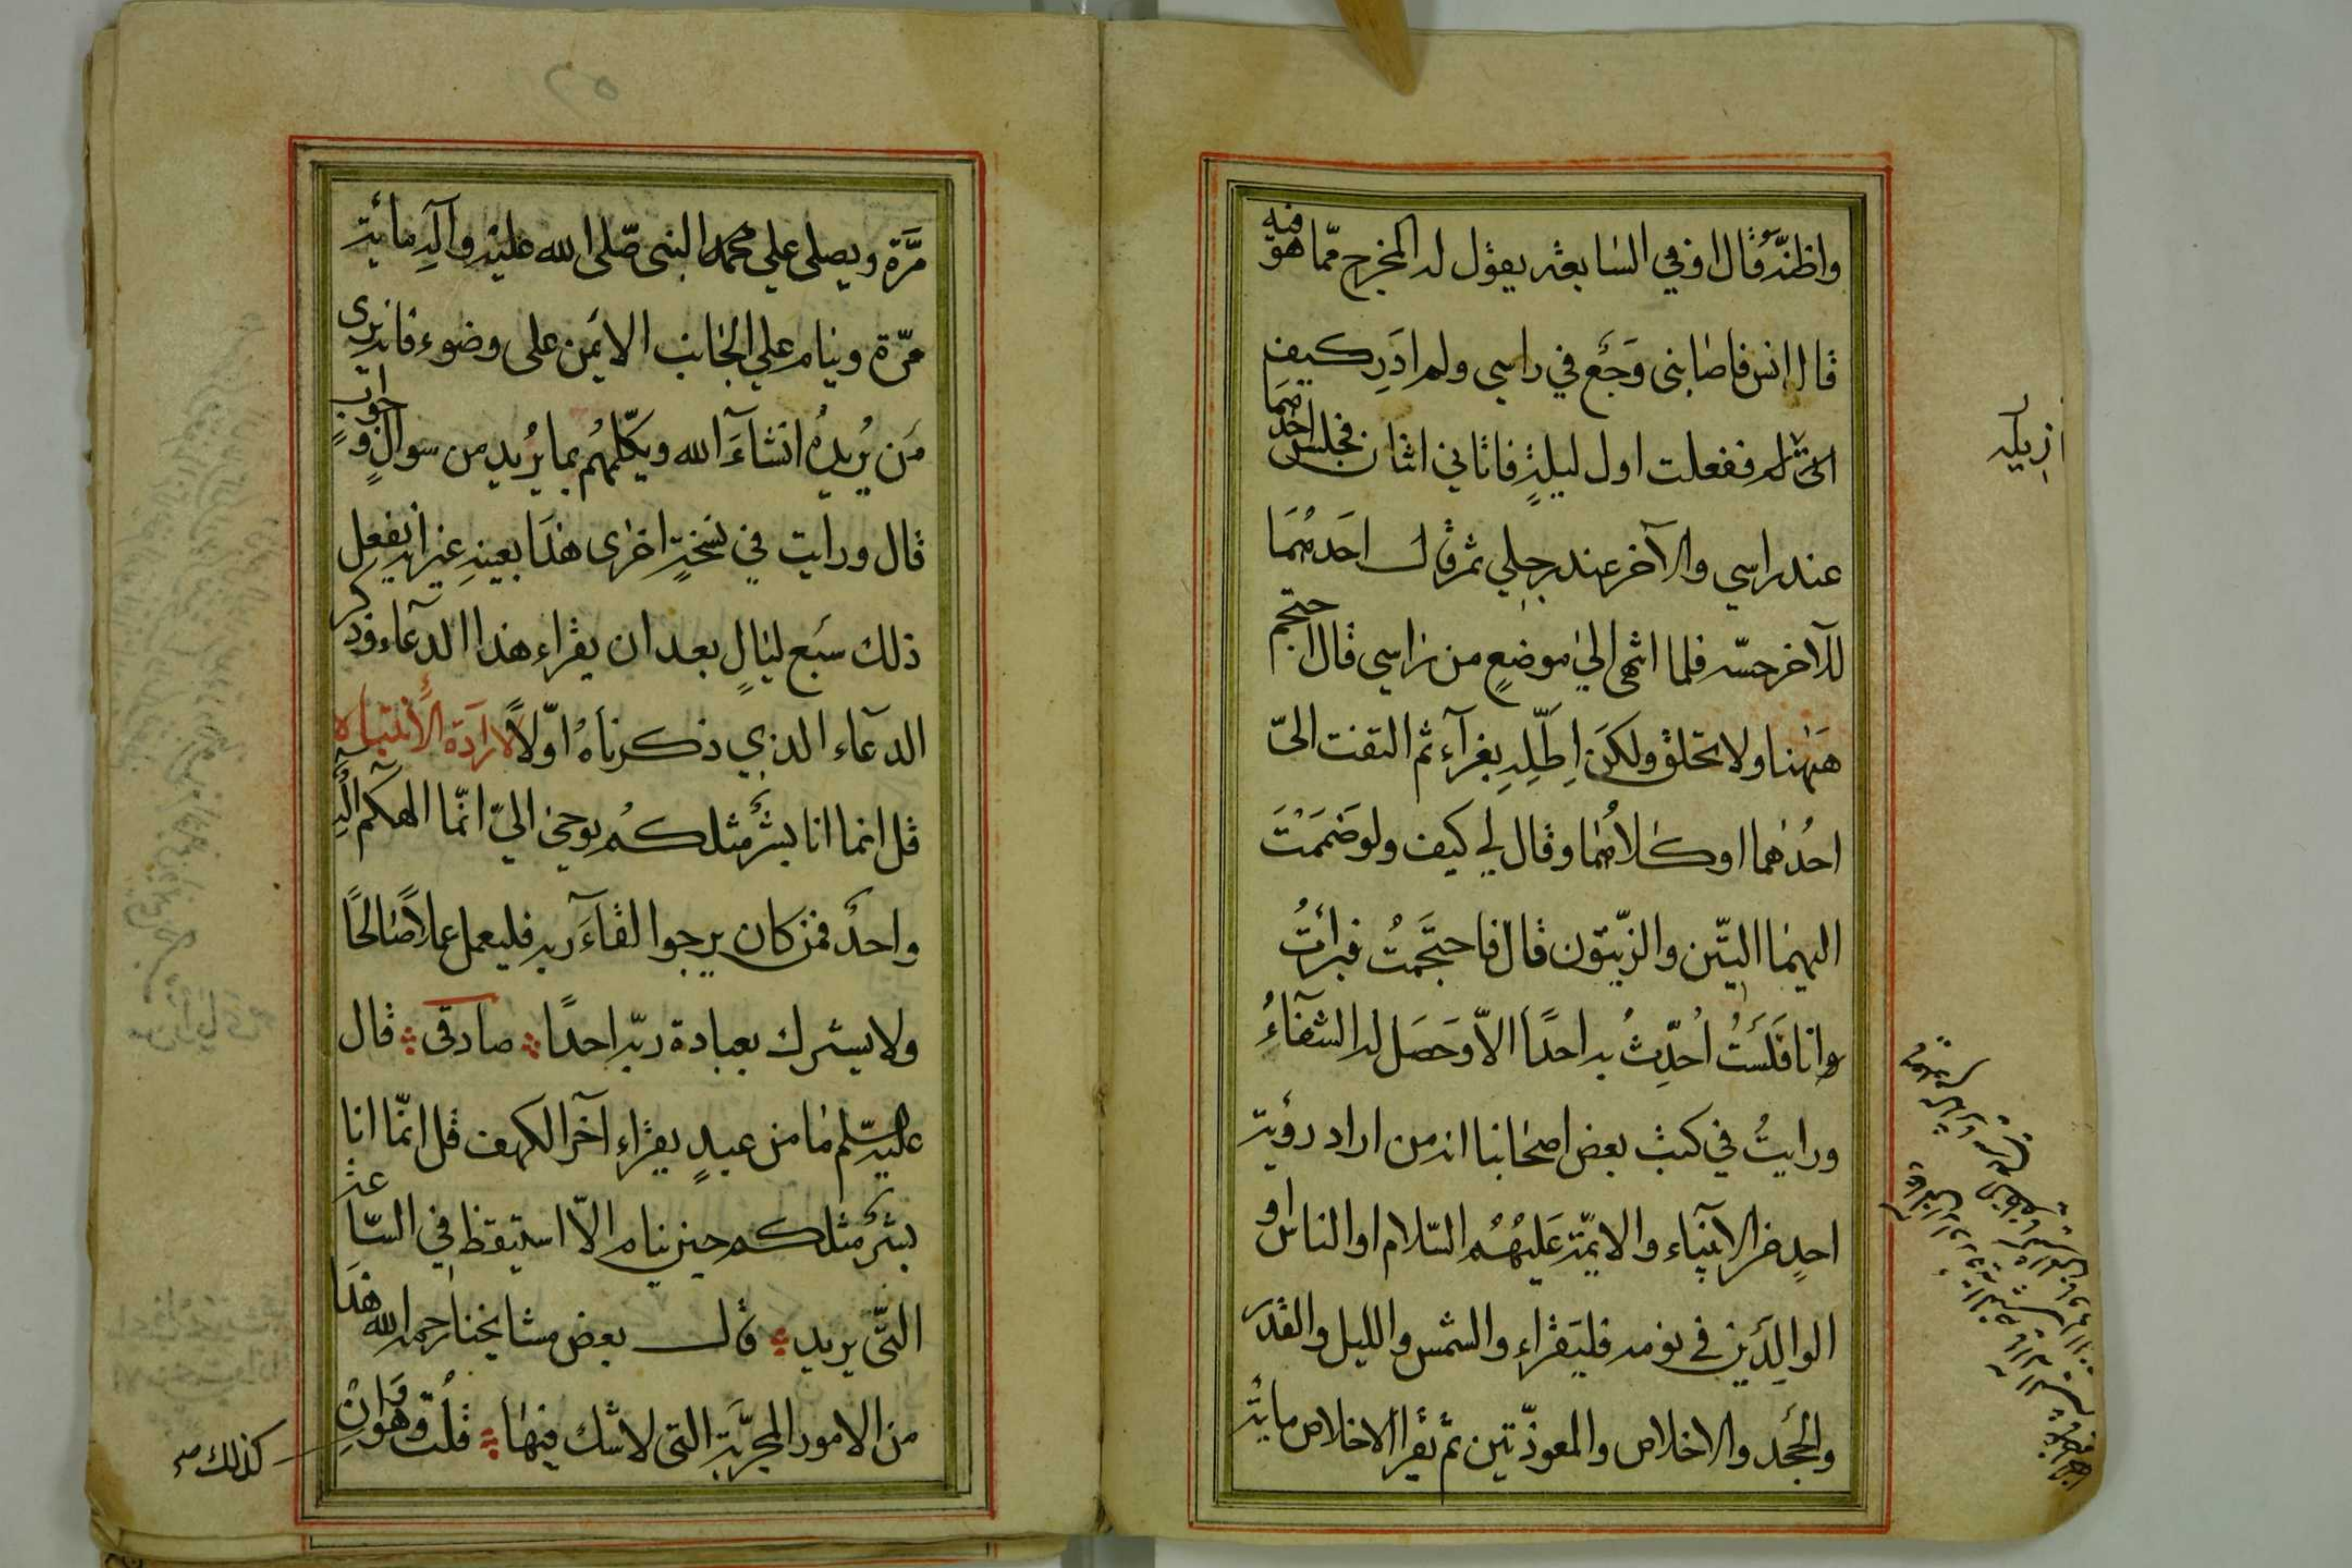 واظنّه قال او في السابعة يقول له المخرج مما هو فيه
قال انس فاصابنى وَجَع في راسي ولم ادَرِ كيف
اتى له ففعلت اول ليلةٍ فاتاني اثنان فجلس احَدُهمَا
عند راسي والآخر عند رجلي ثم قال احَدهُمَا
للآخر جسّه فلما انتهى الي موضعٍ من راسي قال احتجم
هَهُنا ولا تحلق ولكن اطله بغرآء ثم التفت الىّ
احُدهما او كلاهُما وقال لي كيف ولو ضَمَمْتَ
اليهما التّين والزّيتون قال فاحتَجَمتُ فبرأتُ
وانا فَلَسَتُ اُحدِّثُ به احدًا الاّ وحَصَل له الشفآءُ
ورايتُ في كتب بعض اصحابنا انه من اراد رؤية
احدٍ من الانبياء والايمّة عَليهُمُ السّلام او الناس او
الوالِدَين في نومه فليَقراء والشمس والليل والقدَر
والجَحد والاخلاص والمعوذّتين ثم يقرأ الاخلاص مايئة
ازيله
مَّرة ويصلى علي محمد النبى صّلى الله عليْه وآلِه مائة
مرّة وينام علي الجَانب الايَمن على وضوء فانه يرى
مَن يُريدُه انشآءَ الله ويكلّمهُم بما يُريد من سوالٍ وجوابٍ
قال ورايت في نسخةٍ اخرٰى هذَا بعينهِ غير انه يفعل
ذلك سَبع ليَالٍ بعد ان يقراء هذا الدعآء وذكر
الدعآء الذي ذكرناهُ اوّلاً لارادَة الأنتباه
قل انما انا بشرٌ مثلكُم يوحىٰ اليّ انّما الهكم الٰه
واحدٌ فمن كان يرجوا لقآءَ ربه فليعمل عملاً صَالحًا
ولا يشرك بعبادة ربّه احدًا صادقى قال
عليه السّلم مَا من عبدٍ يقراء آخر الكهف قل انّما انا
بشرٌ مثلكم حين ينام الاّ استيقظ في السّاعة
التّى يريد قال بعض مشايخنا رحمه الله هذَا
من الامور المجرَّبة التى لا شك فيها قلُت وهَو وَانْ
كذلك صح